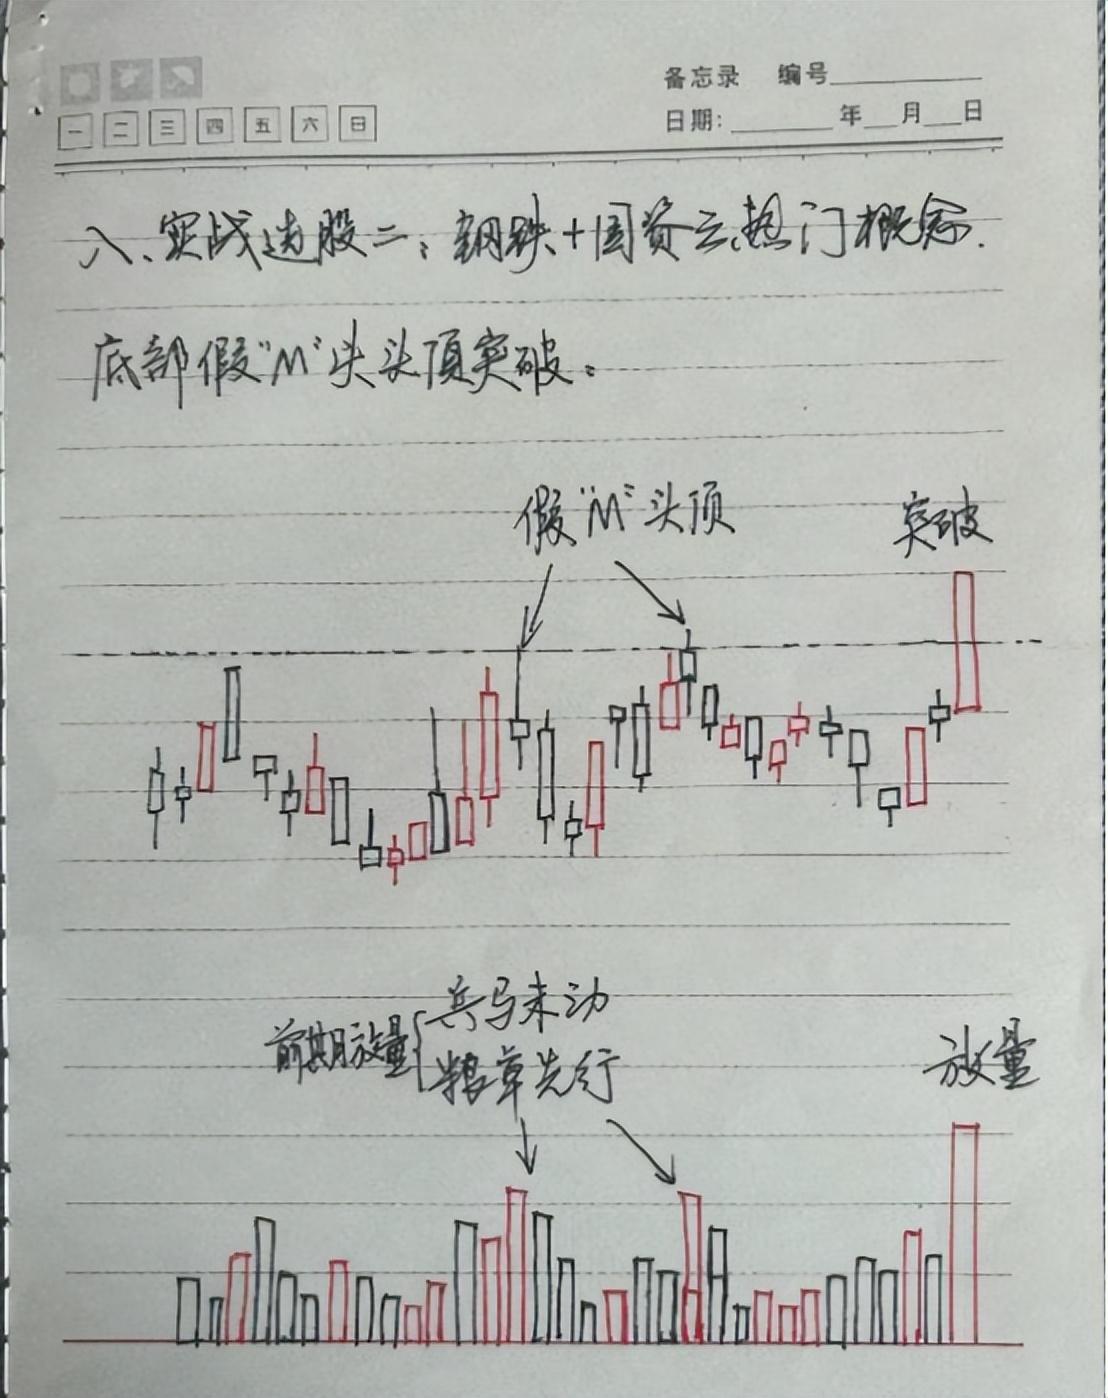 备忘录 编号
一 二 三 四 五 六 日
日期: 年 月 日
八、实战选股二:钢铁+国资云热门概念.
底部假“M”头头顶突破。
假“M”头顶
突破
前期放量{兵马未动
粮草先行
放量